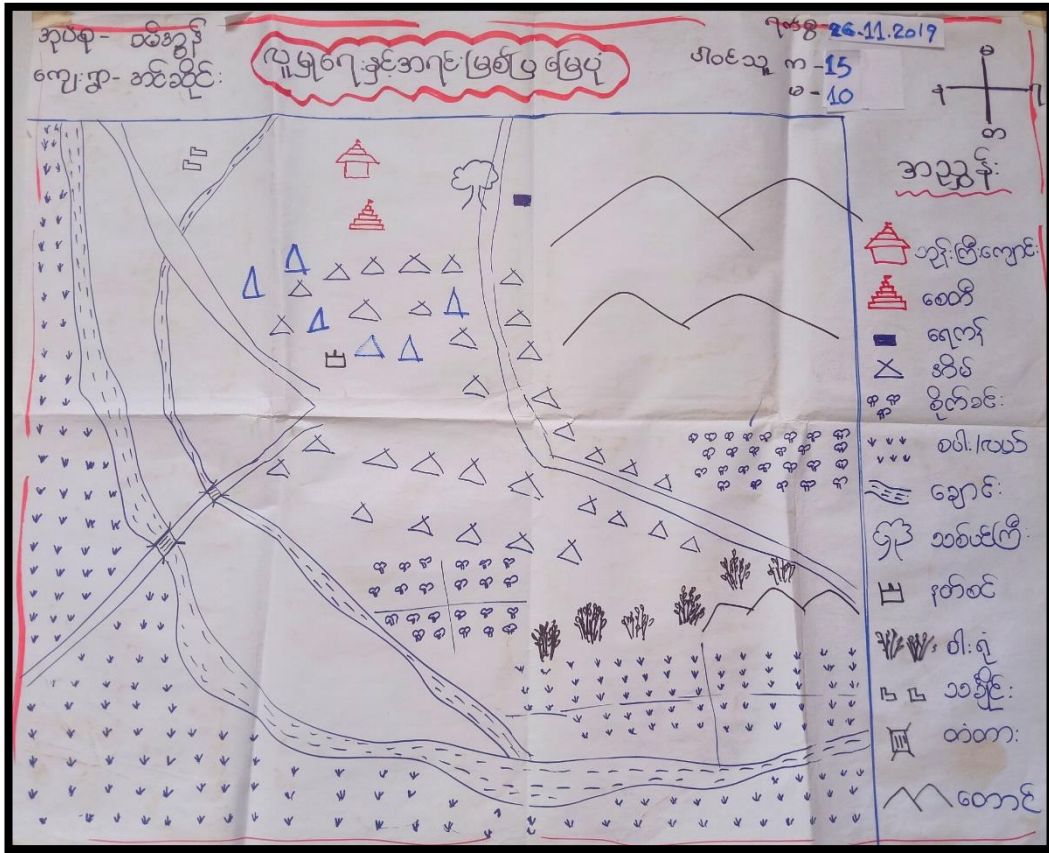 အုပ်စု -
ကျေးရွာ - အင်ဆိုင်း
လူမှုရေးနှင့်အရင်းမြစ်ပြ မြေပုံ
ရက်စွဲ 26.11.2019
ပါဝင်သူ က - 15
မ - 10
အညွှန်း
ဘုန်းကြီးကျောင်း
စေတီ
ရေကန်
အိမ်
စိုက်ခင်း
စပါး/လယ်
ချောင်း
သစ်ပင်ကြီး
နတ်စင်
ဝါးရုံ
သင်္ချိုင်း
တံတား
တောင်